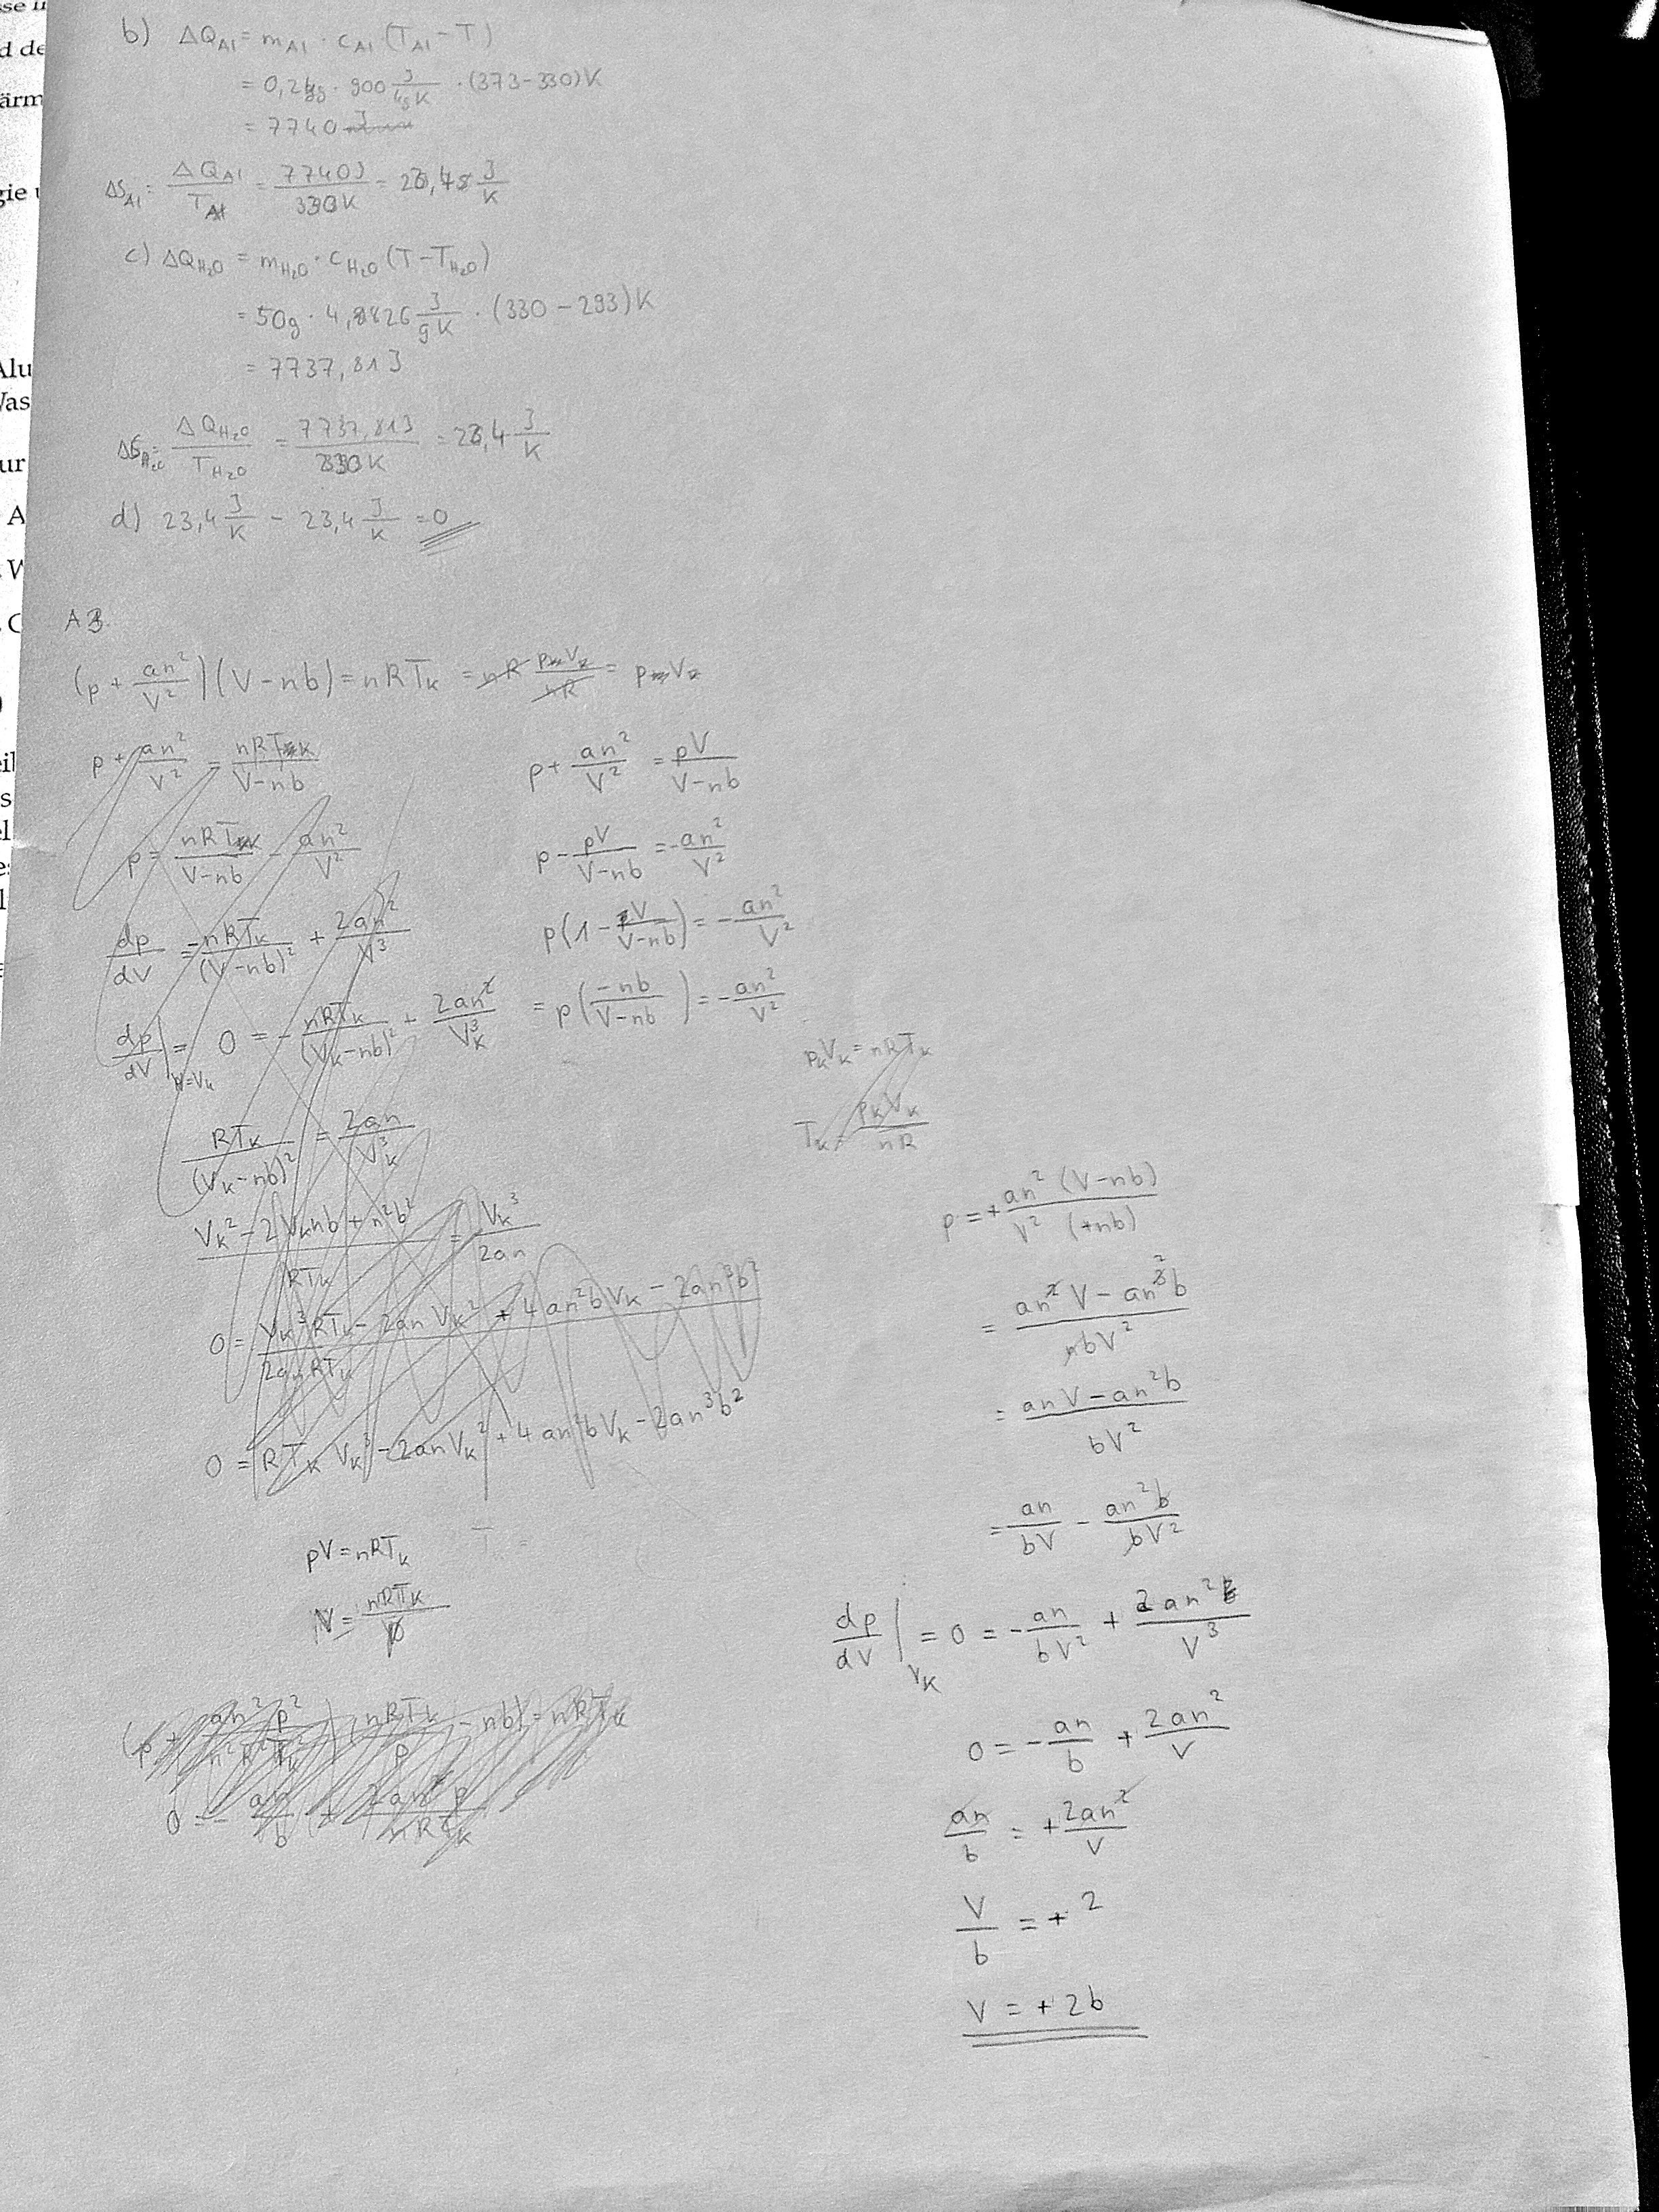 b) ΔQ_Al = m_Al · c_Al (T_Al − T)
= 0,2kg · 900 J/kgK · (373−330)K
= 7740 J
ΔS_Al = ΔQ_Al/T = 7740J/330K = 23,45 J/K
c) ΔQ_H₂O = m_H₂O · c_H₂O (T − T_H₂O)
= 50g · 4,1826 J/gK · (330 − 293)K
= 7737,81J
ΔS_H₂O = ΔQ_H₂O/T_H₂O = 7737,81J/330K = 23,4 J/K
d) 23,4 J/K − 23,4 J/K = 0
A3.
(p + an²/V²)(V − nb) = nRT_K = nR pV/nR = pV
p + an²/V² = nRT_K/(V−nb)
p = nRT_K/(V−nb) − an²/V²
dp/dV = −nRT_K/(V−nb)² + 2an²/V³
dp/dV|_V=V_K = 0 = −nRT_K/(V_K−nb)² + 2an²/V_K³
RT_K/(V_K−nb)² = 2an/V_K³
(V_K² − 2V_K nb + n²b²)/RT_K = V_K³/2an
0 = (V_K³RT_K − 2anV_K² + 4an²bV_K − 2an³b²)/2anRT_K
0 = RT_K V_K³ − 2anV_K² + 4an²bV_K − 2an³b²
pV = nRT_K
V = nRT_K/p
0 = − an/b + 2an²p/nRT_K
p + an²/V² = pV/(V−nb)
p − pV/(V−nb) = −an²/V²
p(1 − V/(V−nb)) = −an²/V²
= p(−nb/(V−nb)) = −an²/V²
p_K V_K = nRT_K
T_K = p_K V_K/nR
p = + an² (V−nb)/V² (+nb)
= (an²V − an³b)/nbV²
= (anV − an²b)/bV²
= an/bV − an²b/bV²
dp/dV|_V_K = 0 = −an/bV² + 2an²/V³
0 = −an/b + 2an²/V
an/b = +2an²/V
V/b = +2
V = +2b